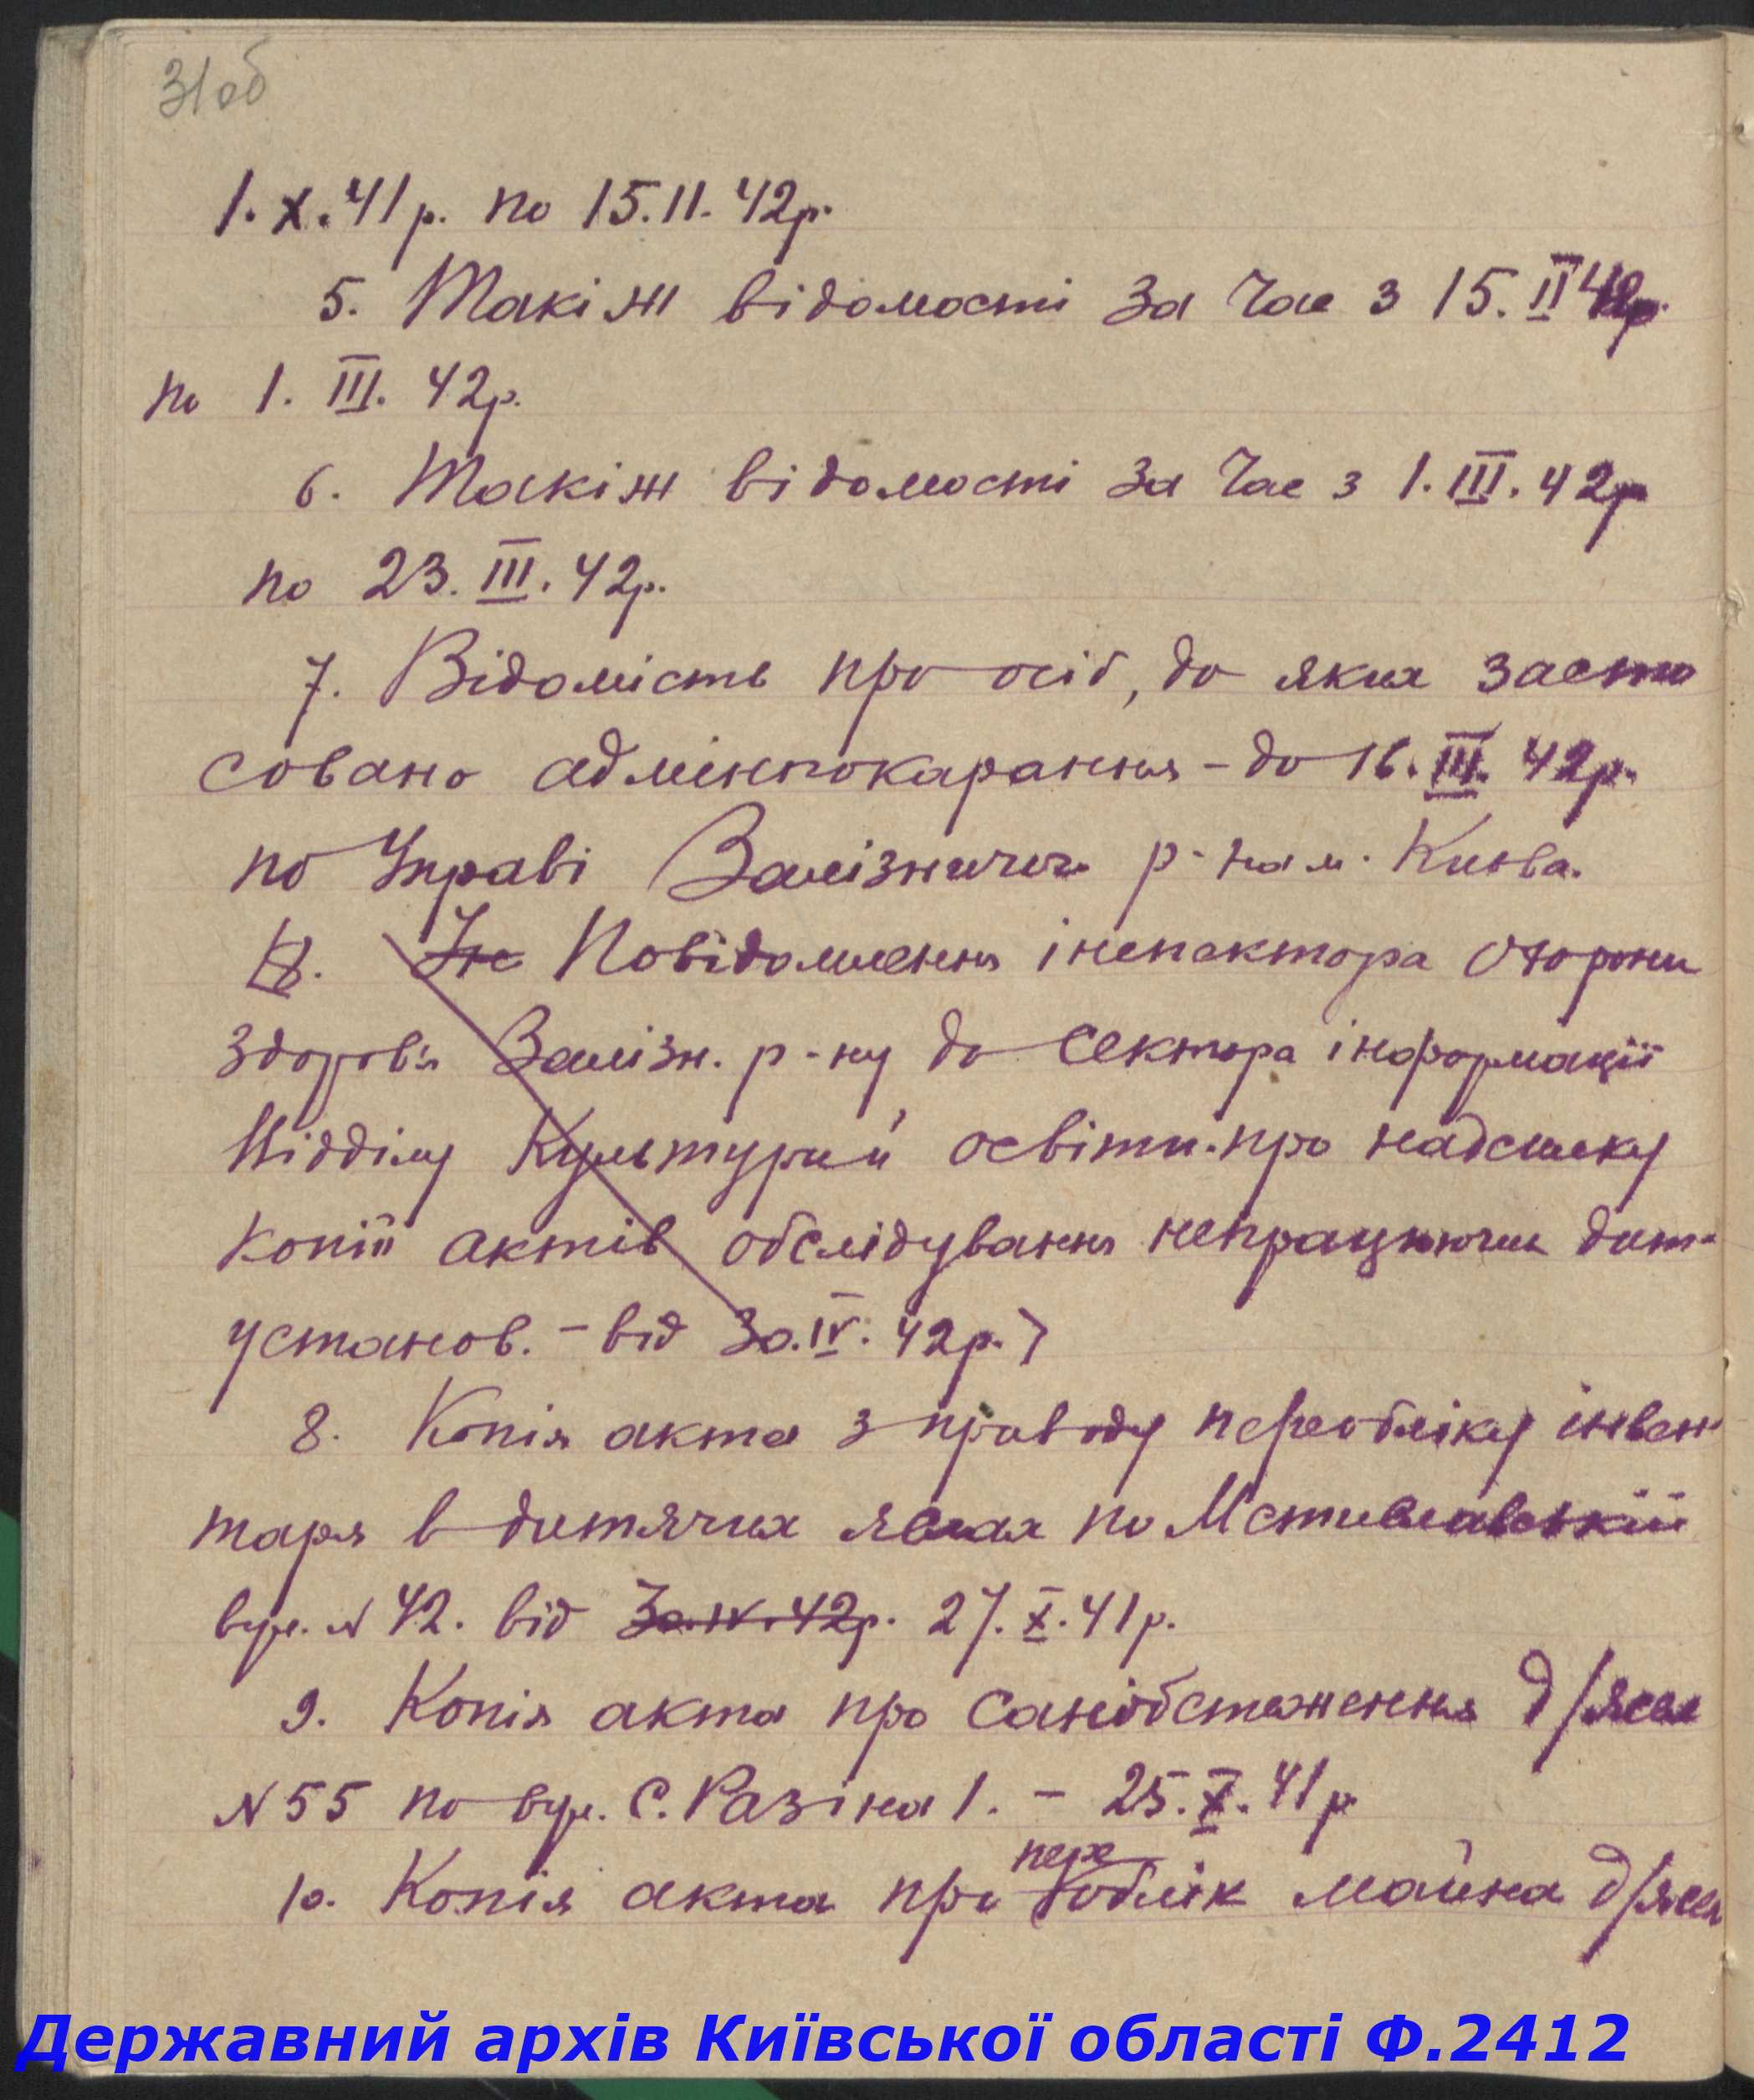 31об
1.X.41р. по 15.II.42р.
5. Такіж відомості за час з 15.II 42р.
по 1.III.42р.
6. Такіж відомості за час з 1.III.42р
по 23.III.42р.
7. Відомість про осіб, до яких засто
совано адмінпокарання - до 16.III.42р.
по Управі Залізничн р-на м. Києва.
8. Повідомлення інспектора охорони
здоров'я Залізн. р-ну до сектора інформації
Відділу культури й освіти. про надсилку
копій актів обслідування непрацюючих дит.
установ. - від 30.IV.42р.
8. Копія акта з приводу переобліку інвен
таря в дитячих яслах по Мстиславській
вул. N 42. від 30.IV.42р. 27.X.41р.
9. Копія акта про санобстеження д/ясел
N 55 по вул. С. Разіна 1. - 25.X.41р
10. Копія акта про переоблік майна д/ясел
Державний архів Київської області Ф.2412